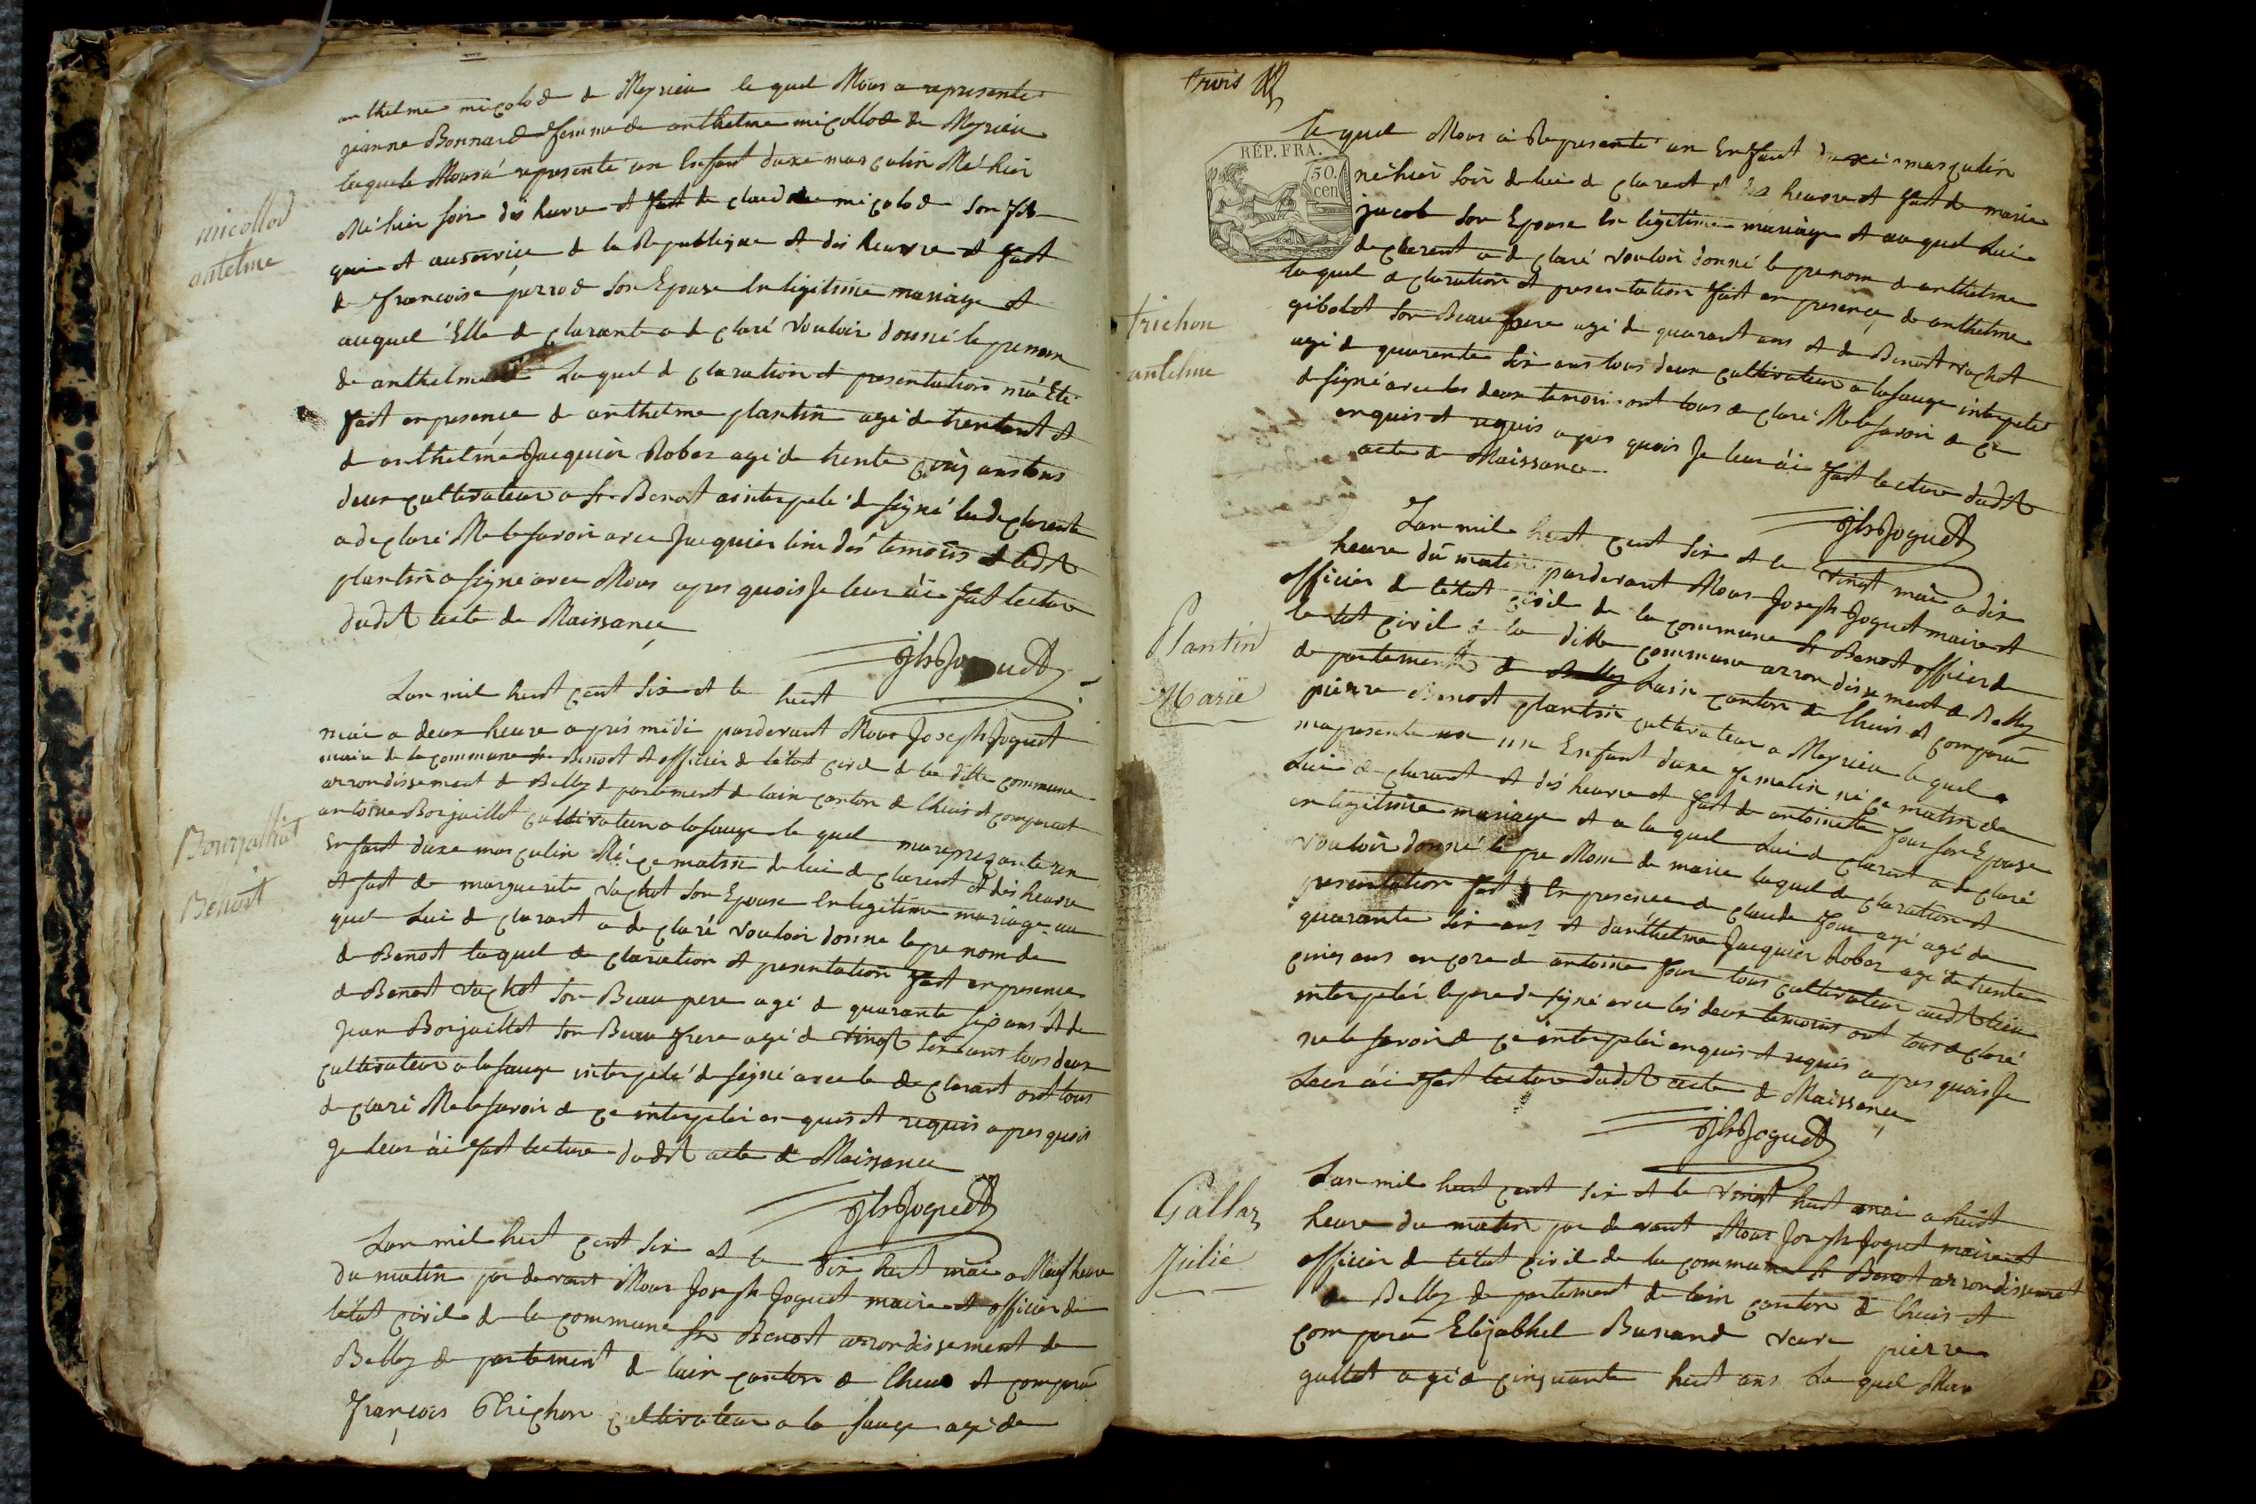 anthelme micolod de Meyrieu le quel Nous a represente
jeanne Bonnard femme de anthelme micollod de Meyrieu
laquele Nous a represente un Enfant du sexe masculin Né hier
Né hier soir dis heure et fait de claude micolod son fils
qui et au service de la Republique et dis heure et fait
de francoise perrod son Epouse En legitime mariage et
auquel Elle de clarante a de claré vouloir donné le prenom
de anthelme La quel de claration et presentation m'a Eté
fait en presence de anthelme plantin agé de trentent et
de anthelme Jacquier Robez agé de trente cinq ans tous
deux cultivateur a St Benoit as interpelé de signé la declarente
a de claré Ne le savoir avec Jacquier l'un des temoins et ledit
plantin a signé avec Nous apres quois Je leur ai fait lecture
dudit acte de Naissance
micollod
antelme
Jh Joguet
Lan mil huit cent six et le huit
mai a deux heure apres midi pardevant Nous Joseph Joguet
maire de la commune St Benoit et officier de l'etat civil de la ditte commune
arrondissement de Belley de partement de lain canton de lhuis et comparut
antoine Borjaillot cultivateur a lasauge le quel
Enfant du sexe masculin Né ce matin de lui de clarent et dis heure
et fait de marguerite vachot son Epouse En legitime mariage au
quel Lui de clarant a de claré vouloir donne le pre nom de
de Benoit laquel de claration et presentation fait en presence
de Benoit vachot son Beau pere agé de quarante six ans et de
Jean Borjaillot son Beau frere agé de vingt six ans tous deux
cultivateur a lasauge interpelé de signé avec le de clarant ont tous
de claré Ne le savoir de ce interpelé enquis et requis apres quois
Je leur ai fait lecture dudit acte de Naissance
Bourjaillot
Benoit
Jh Joguet
Lan mil huit cent six et le dix huit mai a Neuf heure
du matin par devant Nous Joseph Joguet maire et officier de
letat civil de la commune St Benoit arrondissement de
Belley de partement de lain canton de lhuis et comparu
François Trichon cultivateur a la sauge agé de
trois
Le quel Nous a Represente un Enfant du sexe masculin
RÉP. FRA.
50.
cen
né hier soir de lui de clarent et dis heure et fait de marie
jacob son Epouse En legitime mariage et auquel Lui
de clarent a de claré vouloir donné le prenom de anthelme
laquel de claration et presentation fait en presence de anthelme
gibolet son Beau frere agé de quarant ans et de Benoit vachot
agé de quarente six ans tous deux cultivateur a lasauge interpelé
de signé avec les deux temoin ont tous de claré Ne le savoir de ce
enquis et requis apres quois Je leur ai fait lecture dudit
acte de Naissance
trichon
antelme
Jh Joguet
Lan mil huit cent six et le vingt mai a dix
heure du matin pardevant Nous Joseph Joguet maire et
officier de letat civil de la commune St Benoit officier de
letat civil de la ditte commune arrondissement de Belley
de partement de Lain canton de lhuis et comparu
pierre Benoit plantin cultivateur a Meyrieu le quel
ma presente un Enfant du sexe femelin né ce matin de
Lui de clarent et dis heure et fait de antoinette four son Epouse
en legitime mariage et a laquel Lui de clarent a de claré
vouloir donné le pre Nom de marie laquel de claration et
presentation fait En presence de claude four agé agé de
quarante six ans et danthelme Jacquier Robez agé de trente
cinq ans encore de antoine four tous cultivateur audit lieu
interpelé le pere de signé avec les deux temoins ont tous de claré
ne le savoir de ce interpelé enquis et requis apres quois Je
Leur ai fait lecture dudit acte de Naissance
Plantin
Marie
Jh Joguet
Lan mil huit cent six et le vingt huit mai a huit
heure du matin par devant Nous Joseph Joguet maire et
officier de letat civil de la commune St Benoit arrondissement
de Belley de partement de lain canton de lhuis et
comparu Elizabhet Burand veuve pierre
gallet agé de cinquante huit ans La quel Nou
Gallaz
Julie